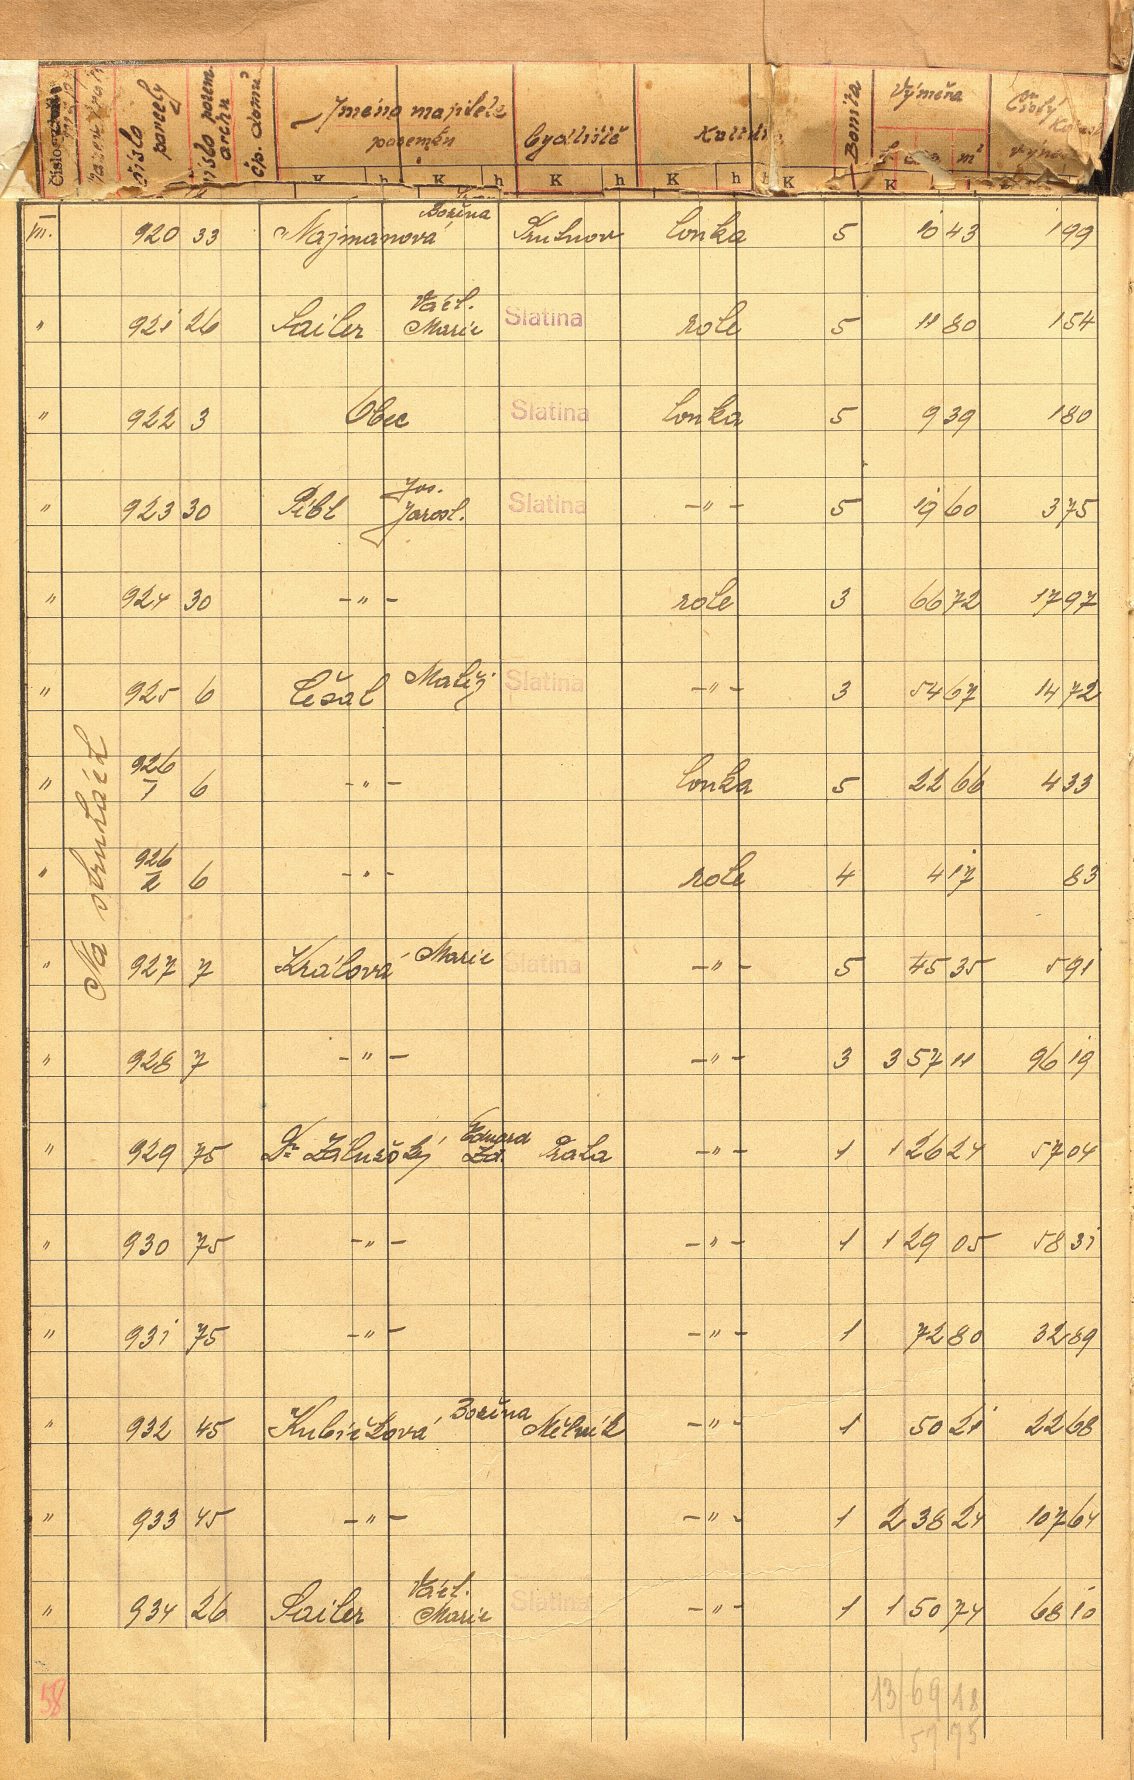 Číslo parcely Číslo pozem. archu čp. domu Jméno majitele pozemku bydliště Kultura Bonita Výměra ha a m² Čistý výnos
K h K h K h K h K K
III. 920 33 Najmanová Božena Trutnov louka 5 10 43 1 99
" 921 26 Sailer Václ. Marie Slatina role 5 11 80 1 54
" 922 3 Obec Slatina louka 5 9 39 1 80
" 923 30 Pibl Jos. Jarosl. Slatina -"- 5 19 60 3 75
" 924 30 -"- role 3 66 72 17 97
" 925 6 Češal Matěj Slatina -"- 3 54 67 14 72
" 926/1 6 -"- louka 5 22 66 4 33
" 926/2 6 -"- role 4 4 17 83
" 927 7 Králová Marie Slatina -"- 5 45 35 5 91
" 928 7 -"- -"- 3 3 57 11 96 19
" 929 75 Dr Zálužský Eduard Zd. Praha -"- 1 1 26 24 57 04
" 930 75 -"- -"- 1 1 29 05 58 31
" 931 75 -"- -"- 1 72 80 32 89
" 932 45 Kubíčková Božena Mělník -"- 1 50 21 22 68
" 933 45 -"- -"- 1 2 38 24 107 64
" 934 26 Sailer Václ. Marie Slatina -"- 1 1 50 74 68 10
Na struhách
58
13 69 18
57 75